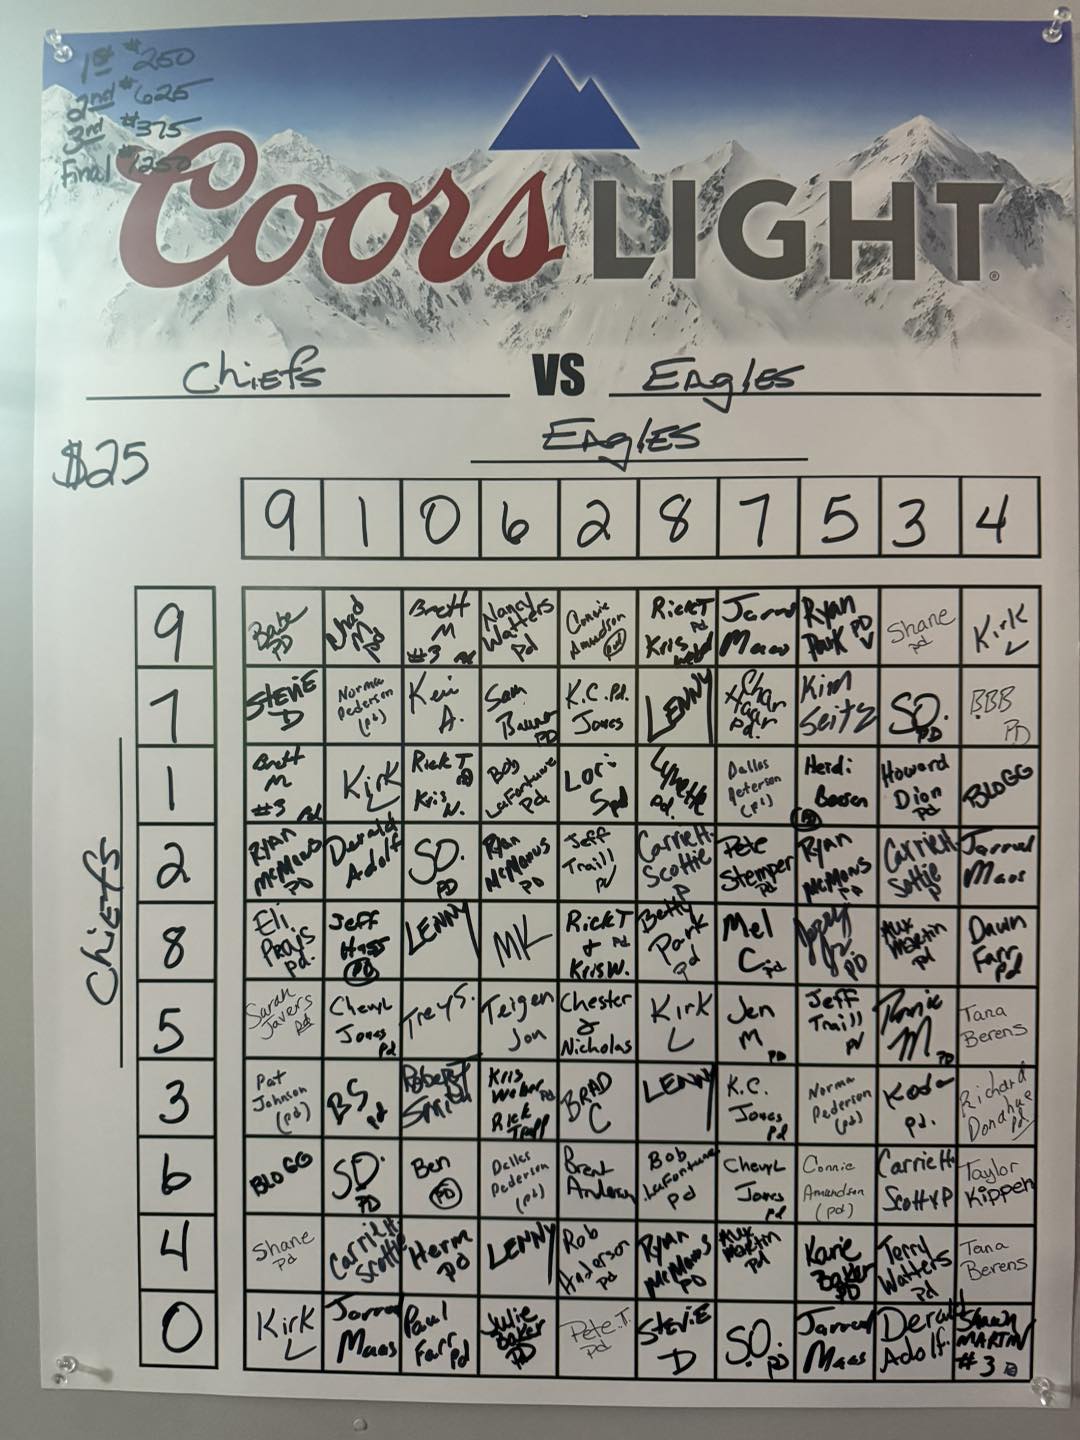 1st $250
2nd $625
3rd $375
Final $1250
Coors LIGHT
Chiefs VS Eagles
Eagles
$25
9 1 0 6 2 8 7 5 3 4
Chiefs
9 Babe PD Chad M pd Brett M #3 pd Nancy Watters pd Connie Amundson pd Rick T pd Kris Jarred Maas Ryan Park PD Shane pd Kirk L
7 STEVIE D Norma Pederson (pd) Keri A. Sam PD K.C. Pd. Jones LENNY Char Haar pd. Kim Seitz SO. PD BBB PD
1 Brett M #3 pd Kirk L Rick T PD Kris W. Bob LaFortune Pd Lori S pd Lynette Pd. Dallas Peterson (pd) Heidi PD Howard Dion pd BLOGG
2 RYAN McManus PD Derald Adolf SO. PD RYAN McManus PD Jeff Traill Carrie H. Scottie P Pete Stemper pd RYAN McManus PD Carrie H. P Jarred Maas
8 Eli Prajs pd. Jeff Hass PD LENNY MK Rick T & pd Kris W. Betty Park pd Mel C. pd PD Alix Martin pd Dawn Farr pd
5 Sarah Javers pd Cheryl Jones pd Trey S. Teigen Jon Chester & Nicholas Kirk L Jen M PD Jeff Traill M PD Tana Berens
3 Pat Johnson (pd) BS pd Robert Smith Kris Weber pd Rick Trapp BRAD C LENNY K.C. Jones pd Norma Pederson (pd) Koda pd. Richard Donahue pd
6 BLOGG SO. PD Ben PD Dallas Pederson (pd) Brent Anderson Bob LaFortune pd Cheryl Jones pd Connie Amundson (pd) Carrie H. Scott P Taylor Kippen
4 Shane pd Carrie H Scottie Herm PD LENNY Rob Anderson pd Ryan McManus PD Alix Martin pd Karie Baker PD Terry Watters pd Tana Berens
0 Kirk L Jarred Maas Paul Farr pd Julie Baker PD Pete T. pd STEVIE D SO. PD Jarred Maas Derald Adolf SHAWN MARTIN #3